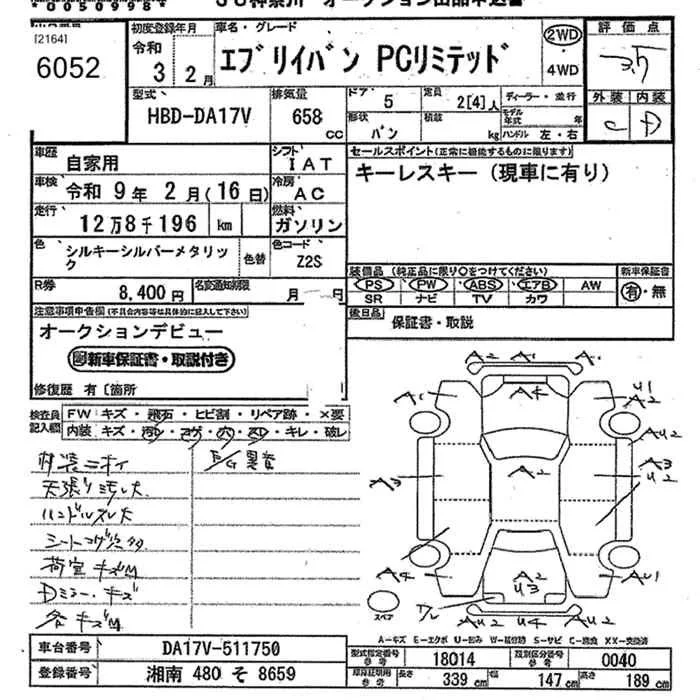 *0050998*
JU神奈川 オークション出品申込書
[2164]
6052
初度登録年月 令和 3年 2月
車名・グレード エブリイバン PCリミテッド
2WD ・ 4WD
評価点 3.5
外装 C 内装 D
型式 HBD-DA17V
排気量 658 CC
ドア 5 定員 2[4]人 ディーラー・並行
形状 バン 積載 kg モデル年式 年 ハンドル 左・右
車歴 自家用
シフト IAT
セールスポイント(正常に機能するものに限ります)
キーレスキー(現車に有り)
車検 令和 9年 2月(16日)
冷房 AC
走行 12万8千196 km
燃料 ガソリン
色 シルキーシルバーメタリック 色替
色コード Z2S
装備品(純正品に限り○をつけてください) 新車保証書
PS PW ABS エアB AW 有・無
SR ナビ TV カワ
R券 8,400円 名変通知期限 月 日
後日品 保証書・取説
注意事項申告欄(不具合内容等は具体的に記入して下さい)
オークションデビュー
新車保証書・取説付き
修復歴 有〔箇所
検査員記入欄 FW キズ・飛石・ヒビ割・リペア跡・×要
内装 キズ・汚レ・コゲ・穴・スレ・キレ・破レ
内装ニオイ
E/G異音
天張り汚れ大
ハンドルスレ大
シートコゲ穴多
荷室キズM
Dミラーキズ
各キズM
A2 A1 A1
A1 A4 U1 A
A2 AU2
A3 A2 A3 U2
A4 A2 U3 AU1
ワレ A2 U4 AU2
スペア
A-キズ E-エクボ U-凹み W-補修跡 S-サビ C-腐食 XX-交換済
車台番号 DA17V-511750
型式指定番号 参考 18014 類別区分番号 参考 0040
登録番号 湘南 480 そ 8659
車庫証明用 参考 長さ 339 cm 幅 147 cm 高さ 189 cm